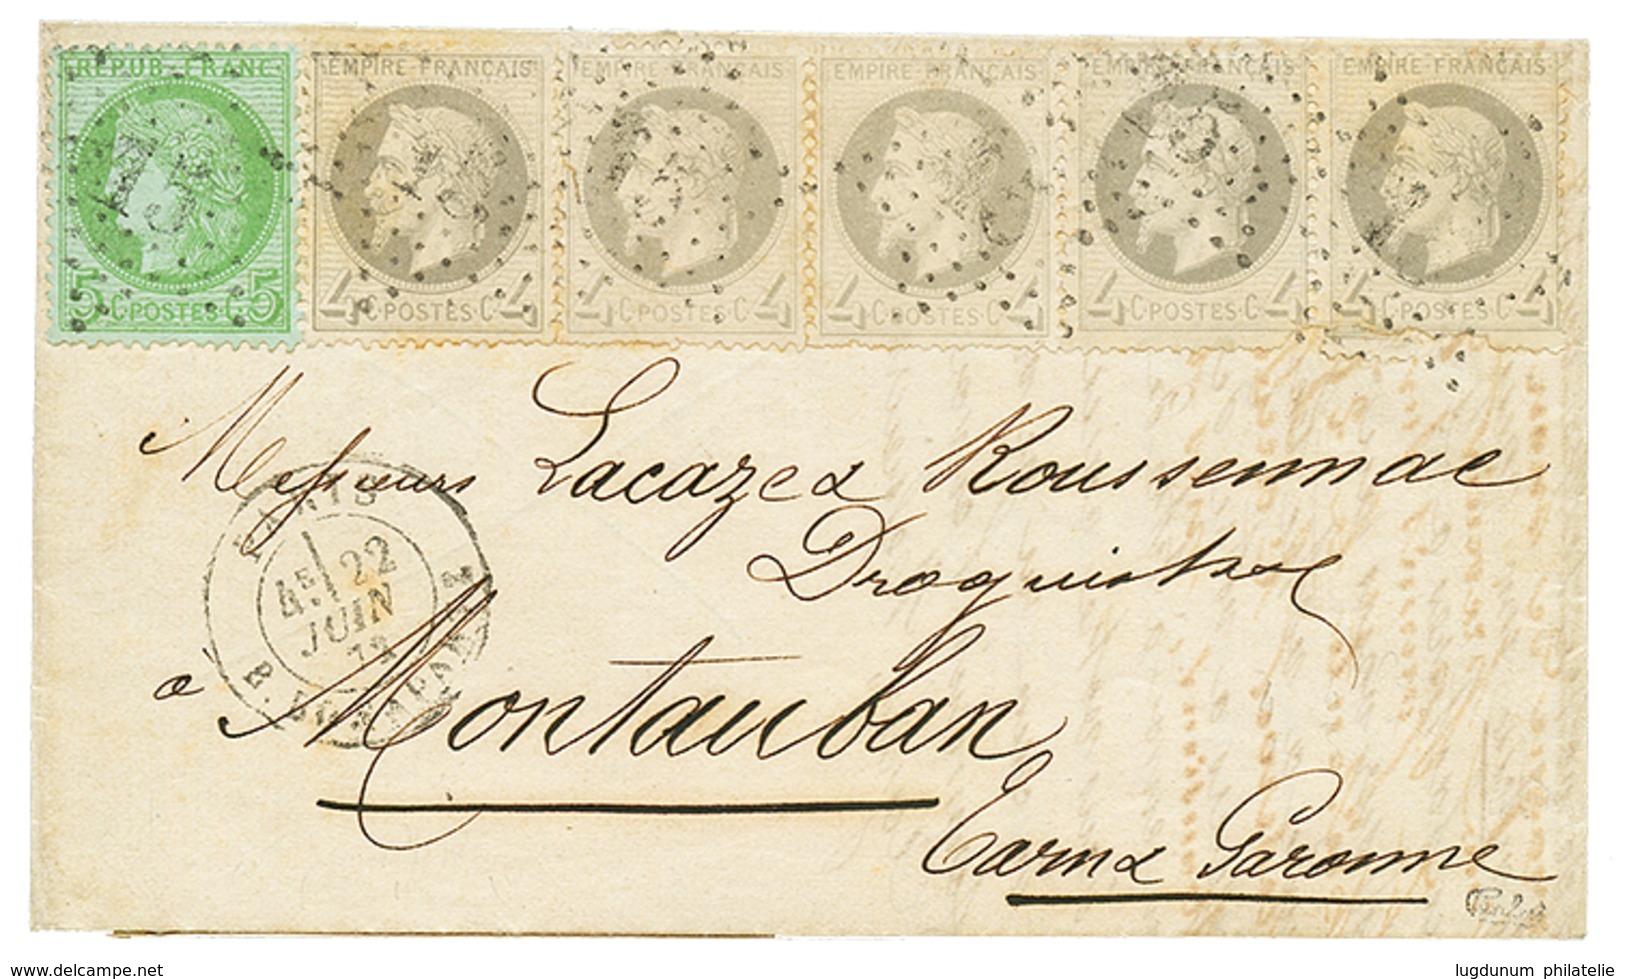 REPUB. FRANC.
EMPIRE FRANÇAIS
EMPIRE FRANÇAIS
EMPIRE FRANÇAIS
EMPIRE FRANÇAIS
EMPIRE FRANÇAIS
15
5 C·POSTES·C 5
4 C·POSTES·C 4
4 C·POSTES·C 4
4 C·POSTES·C 4
4 C·POSTES·C 4
4 C·POSTES·C 4
Messieurs Lacaze & Roussennac
Droguistes
à Montauban
Tarn & Garonne
PARIS
4E 22
JUIN
73
R. BONAPARTE
www.delcampe.net
lugdunum philatelie